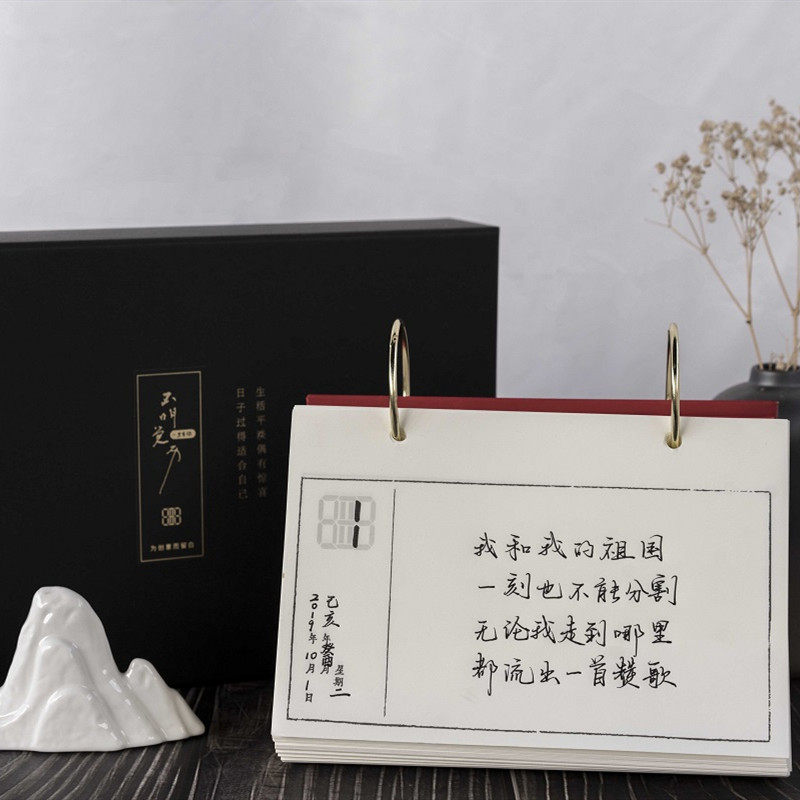 生活平淡偶有惊喜
日子过得适合自己
为创意而留白
1
我和我的祖国
一刻也不能分割
无论我走到哪里
都流出一首赞歌
己亥年癸酉月
2019年10月1日
星期二